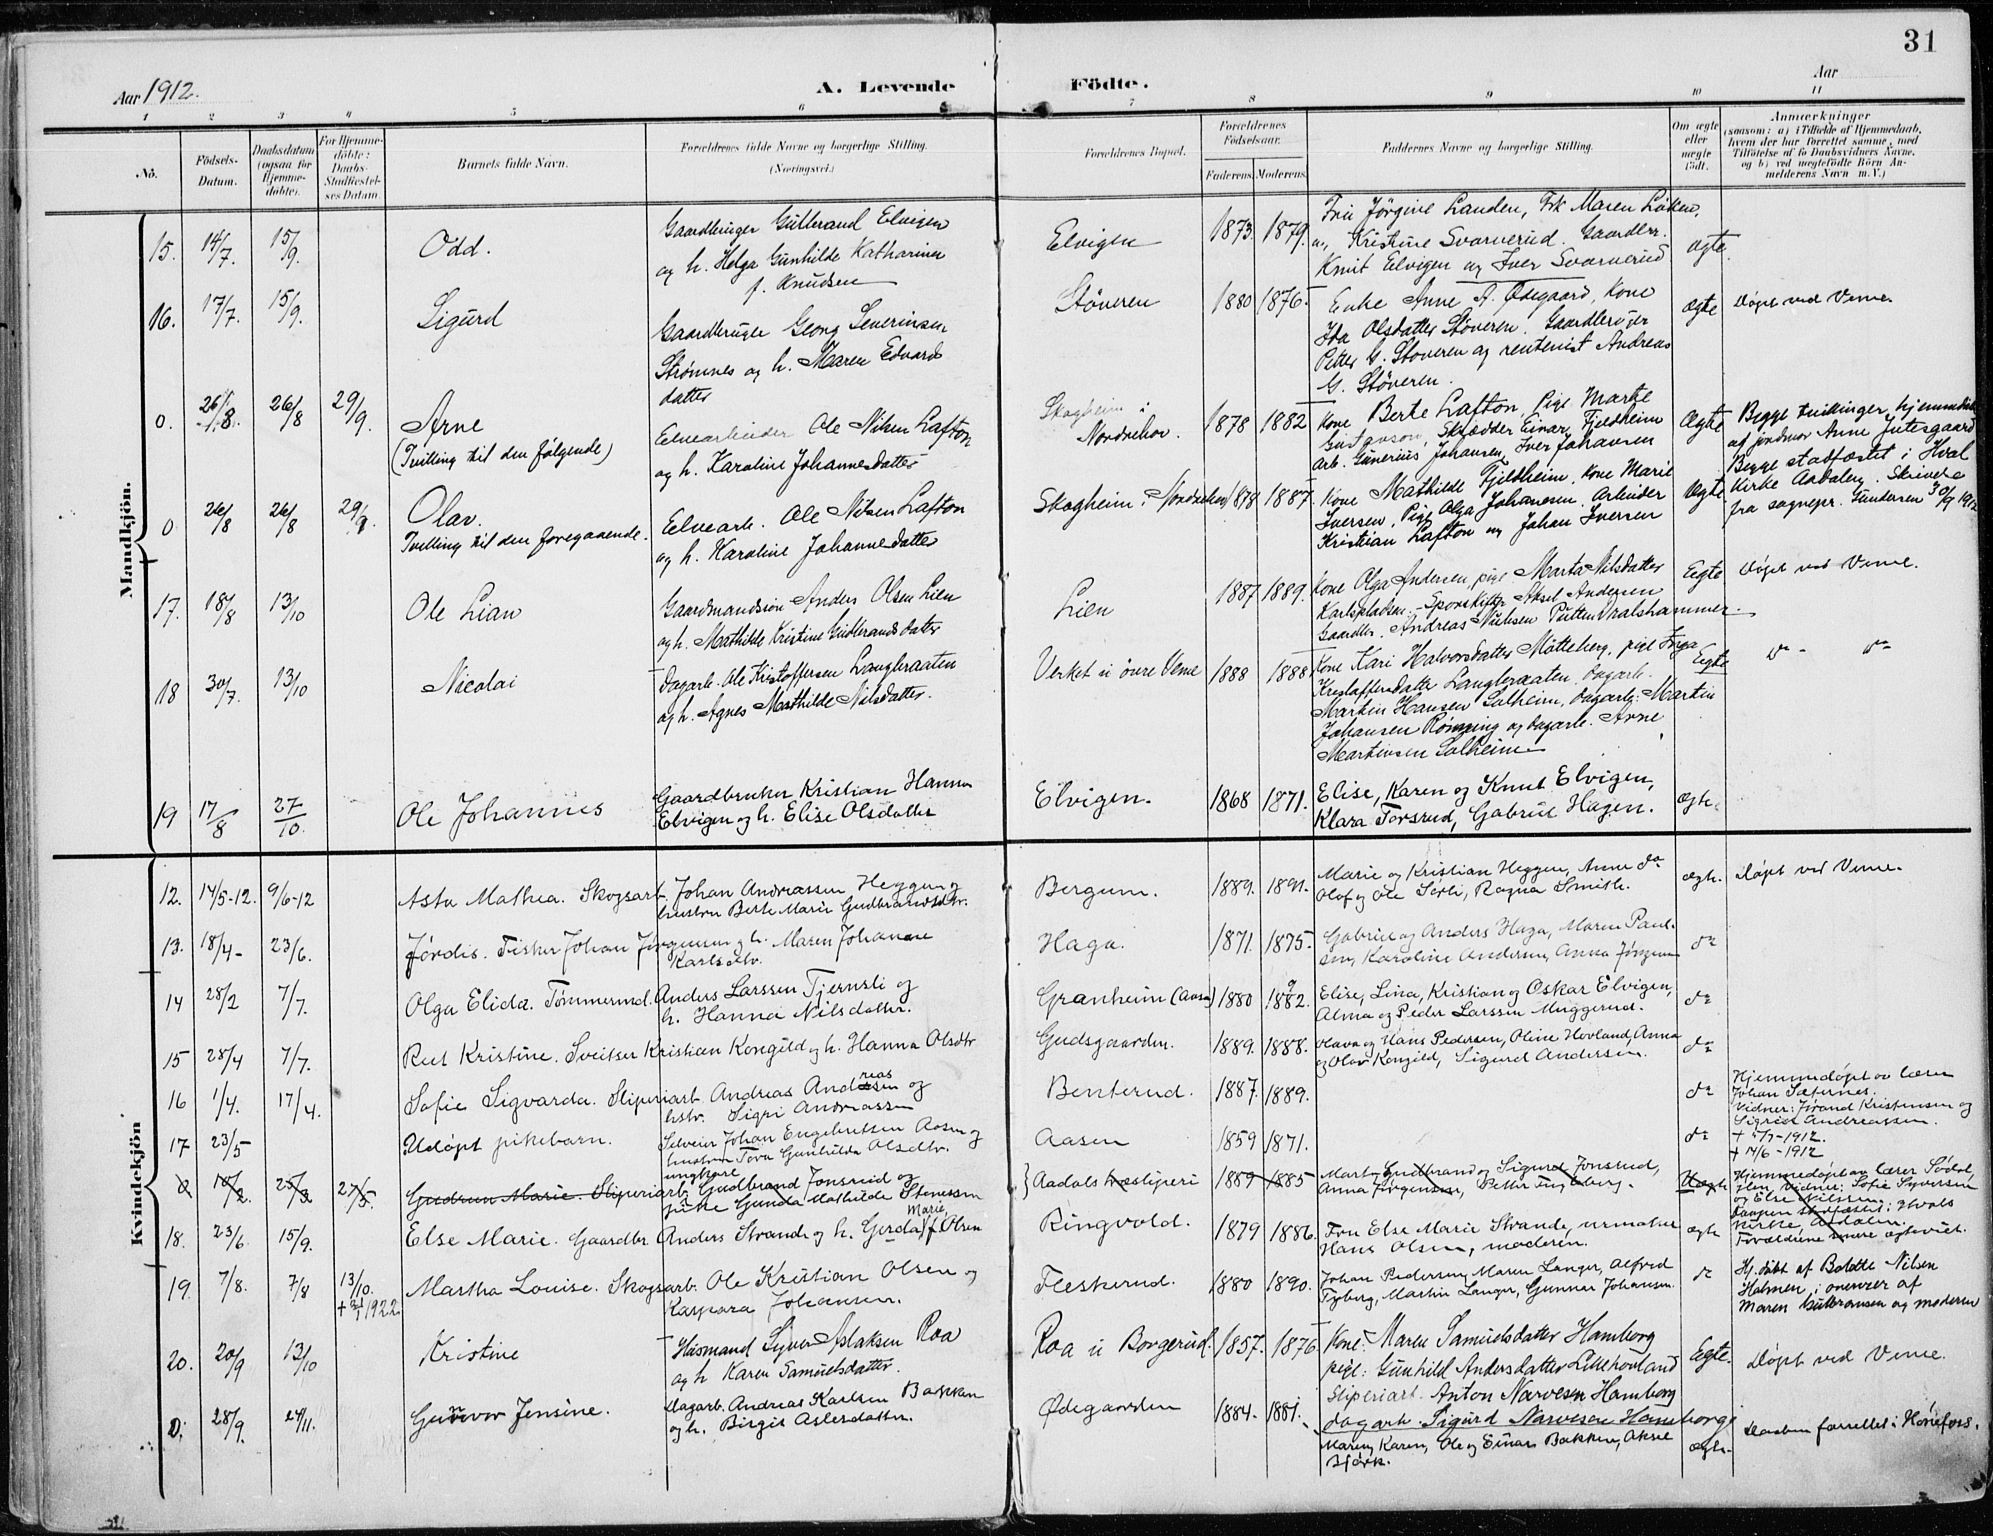 31
Aar 1912.
A. Levende Födte.
Aar
1 2 3 4 5 6 7 8 9 10 11
No.
Födsels-Datum.
Daabsdatum (ogsaa for Hjemme-döbte).
For Hjemme-döbte: Daabs-Stadfæstel-ses Datum
Barnets fulde Navn.
Forældrenes fulde Navne og borgerlige Stilling.
(Næringsvei.)
Forældrenes Bopæl.
Forældrenes Födselsaar.
Faderens. Moderens.
Faddernes Navne og borgerlige Stilling.
Om ægte eller uægte födt.
Anmærkninger
(saasom: a) i Tilfælde af Hjemmedaab, hvem der har forrettet samme, med Tilföielse af to Daabsvidners Navne, og b) ved uægtefödte Börn An-melderens Navn m. V.)
Mandkjön.
15. 14/7. 15/9. Odd.
Gaardbruger Gulbrand Elvigen
og h. Helga Gunhilde Katharina
f. Knudsen
Elvigen 1873. 1879.
Fru Jørgine Landen, Frk Maren Løken,
Kristine Svarverud. Gaardbr.
Knut Elvigen og Iver Svarverud
ægte.
16. 17/7. 15/9. Sigurd
Gaardbruger Georg Severinsen
Strømnes og h. Maren Edvards
datter
Støveren 1880 1876.
Enke Anne A. Ødegaard, Kone
Ida Olsdatter Støveren. Gaardbruger
Petter G. Støveren og rentenist Andreas
G. Støveren.
Ægte Døpt ved Veme.
0. 26/8. 26/8 29/9. Arne
(Tvilling til den følgende)
Elvearbeider Ole Nilsen Lafton
og h. Karoline Johannesdatter
Skogheim i
Nordrehov. 1878 1882
Kone Berte Lafton, Pige Marte
Gustavson, Skrædder Einar Fjeldheim
arb. Gunerius Johansen, Iver Johansen
Ægte
Begge tvillinger hjemmedøbt
af jordmor Anne Intesgaard
Begge stadfæstet i Hval
Kirke Aadalen. Skrivelse
fra sognepr. Gundersen 30/9 1912
0 26/8 26/8 29/9. Olav.
Tvilling til den foregaaende.
Elvearb. Ole Nilsen Lafton
og h. Karoline Johannesdatter
Skogheim i Nordrehov 1878 1887.
Kone Mathilde Fjeldheim, Kone Marie
Iversen, Pige Olga Johansen. Arbeider
Kristian Lafton og Johan Iversen
Ægte
17. 18/8 13/10 Ole Lian
Gaardmandssøn Anders Olsen Lien
og h. Mathilde Kristine Gudbrandsdatter
Lien 1887 1889.
Kone Olga Andersen, pige Marta Nilsdatter
Karlspladsen. Sporskifter Aksel Andersen
Gaardbr. Andreas Nielsen Putten Vralshammer.
Eegte Døpt ved Veme.
18 30/7. 13/10 Nicolai
Dagarb. Ole Kristoffersen Langbraaten
og h. Agnes Mathilde Nilsdatter.
Verket i øvre Veme 1888 1888
Kone Kari Halvorsdatter Møtteberg, pige Inga
Kristoffersdatter Langbraaten. Dagarb.
Martin Hansen Solheim, Dagarb. Martin
Johansen Rønning og Dagarb. Arne
Martinsen Solheim
Eegte do do
19 17/8 27/10. Ole Johannes
Gaardbruker Kristian Hansen
Elvigen og h. Elise Olsdatter
Elvigen. 1868 1871.
Elise, Karen og Knut Elvigen,
Klara Forsrud, Gabriel Hagen.
ægte.
Kvindekjön
12. 14/5-12. 9/6-12 Asta Mathea. Skogsarb. Johan Andreassen Heggen og
hustru Berte Marie Gudbrandsdtr.
Bergum. 1889. 1891.
Marie og Kristian Heggen, Anne do
Olaf og Ole Sørli, Ragna Smith.
ægte. Døpt ved Veme.
13. 18/4- 23/6. Jørdis. Fisker Johan Jørgensen og h. Maren Johanne
Karlsdtr.
Haga. 1871. 1875.
Gabriel og Anders Haga, Maren Paul-
sen, Karoline Andersen, Anna Jørgensen
do
14 28/2 7/7. Olga Elida. Tømmermd. Anders Larssen Tjernsli og
h. Hanna Nilsdatter.
Granheim (Aasa) 1880 1882.
Elise, Lina, Kristian og Oskar Elvigen,
Alma og Peder Larssen Muggerud.
do
15 28/4 7/7. Rut Kristine. Sveitser Kristian Kongild og h. Hanna Olsdtr
Gudsgaarden. 1889. 1888.
Olava og Hans Pedersen, Oline Hovland, Anna
og Olav Kongild, Sigurd Andersen.
do
16 1/4. 17/4. Sofie Sigvarda. Sliperiarb. Andreas Andreassen og
hstr. Sigri Andreassen
Benterud. 1887. 1889.
do
Hjemmedøpt av lærer
Johan Sæternes.
Vidner: Jørand Kristensen og
Sigrid Andreassen.
+ 5/7-1912.
17 23/5 Udøpt pikebarn. Selveier Johan Engebretsen Aasen og
hustru Tova Gunhilda Olsdtr.
Aasen 1859 1871. do + 14/6-1912
0 27/5. Gudrun Marie. Sliperiarb. ungkare Gudbrand Jonsrud og
pike Gunda Mathilde Stenersen
Aadals træsliperi 1889 1885
Mart, Gudbrand og Sigurd Jonsrud,
Anna Jørgensen, Petter Tingelberg.
Uægte
Hjemmedøpt av lærer Sødal,
Vidner: Sofie Syversen
og Else Nilsen.
Daapen stadfæstet i Hvals
kirke, Aadalen.
Forældrene senere egteviet.
18. 23/6. 15/9. Else Marie. Gaardbr Anders Strande og h. Gerda Marie, f. Olsen
Ringvold. 1879 1886.
Fru Else Marie Strande, urmaker
Hans Olsen, moderen.
ægte
19. 7/8. 7/8 13/10. + 1922 Martha Louise. Skogsarb. Ole Kristian Olsen og
Kaspara Johansen.
Fleskerud. 1880 1890.
Johan Pedersen, Maren Langer, Alfred
Tyberg, Martin Langer, Gunnar Johansen.
do
Hj.døbt af Bolette Nilsen
Holmen, i overvær af
Maren Gulbransen og moderen
20. 20/9 13/10 Kristine
Husmand Syver Aslaksen Roa
og h Karen Samuelsdatter.
Roa u Borgerud. 1857. 1876
Kone: Maren Samuelsdatter Hamborg
pige: Gunhild Andersdatter Lillehovland
Sliperiarb. Anton Narvesen Hamborg
dagarb. Sigurd Narvesen Hamborg
Egte. Døpt ved Veme.
0; 28/9. 24/11. Gunvor Jensine.
Dagarb. Andreas Karlsen Bakken
og h. Birgit Aslesdatter.
Ødegaarden 1884. 1881.
Maren, Karen, Ole og Einar Bakken, Aksel
Bjørk.
ægte. Daaben forrettet i Hønefoss.